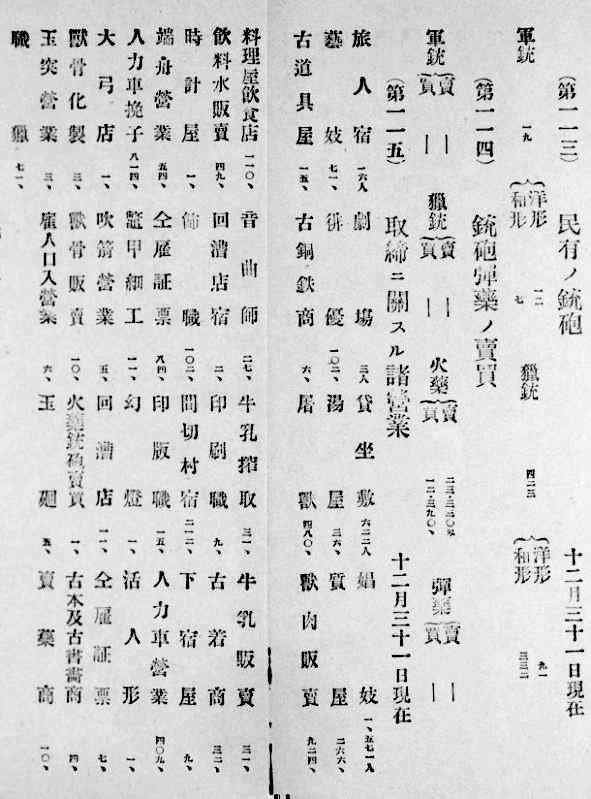 (第一一三) 民有ノ銃砲 十二月三十一日現在
軍銃 一九 {洋形 一二 和形 七 獵銃 四二三 {洋形 九一 和形 三三二
(第一一四) 銃砲彈藥ノ賣買
軍銃{賣 ― 買 ― 獵銃{賣 ― 買 ― 火藥{賣 買 彈藥{賣 ― 買 ―
(第一一五) 取締ニ關スル諸營業 十二月三十一日現在
旅人宿 一六人 劇場 三人 貸坐敷 六二二人 娼妓 一、五七一人
藝妓 七一、 俳優 一〇二、 湯屋 三六、 質屋 二六六、
古道具屋 一五、 古銅鉄商 六、 屠獸 四八〇、 獸肉販賣 九二四、
料理屋飲食店 一一〇、 音曲師 二七、 牛乳搾取 三一、 牛乳販賣 三一、
飲料水販賣 四九、 回漕店宿 二、 印刷職 九、 古着商 三二、
時計屋 一、 飾職 一〇二、 間切村宿 二一二、 下宿屋 九、
端舟營業 五四、 仝雇証票 八四、 印版職 一五、 人力車營業 四〇九、
人力車挽子 八一四、 鼈甲細工 一一、 幻燈 一、 活人形 一、
大弓店 一、 吹箭營業 五、 回漕店 一一、 仝雇証票 七、
獸骨化製 三、 獸骨販賣 一〇、 火藥銃砲賣買 一、 古本及古書畫商 四、
玉突營業 三、 雇人口入營業 六、 玉廻 五、 賣藥商 一〇、
職獵 七一、